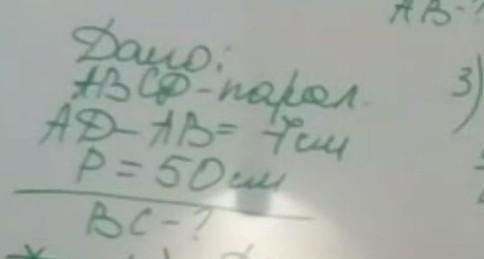 AB-?
Дано:
ABCD-парал.
3)
AD-AB=7см
P=50см
BC-?